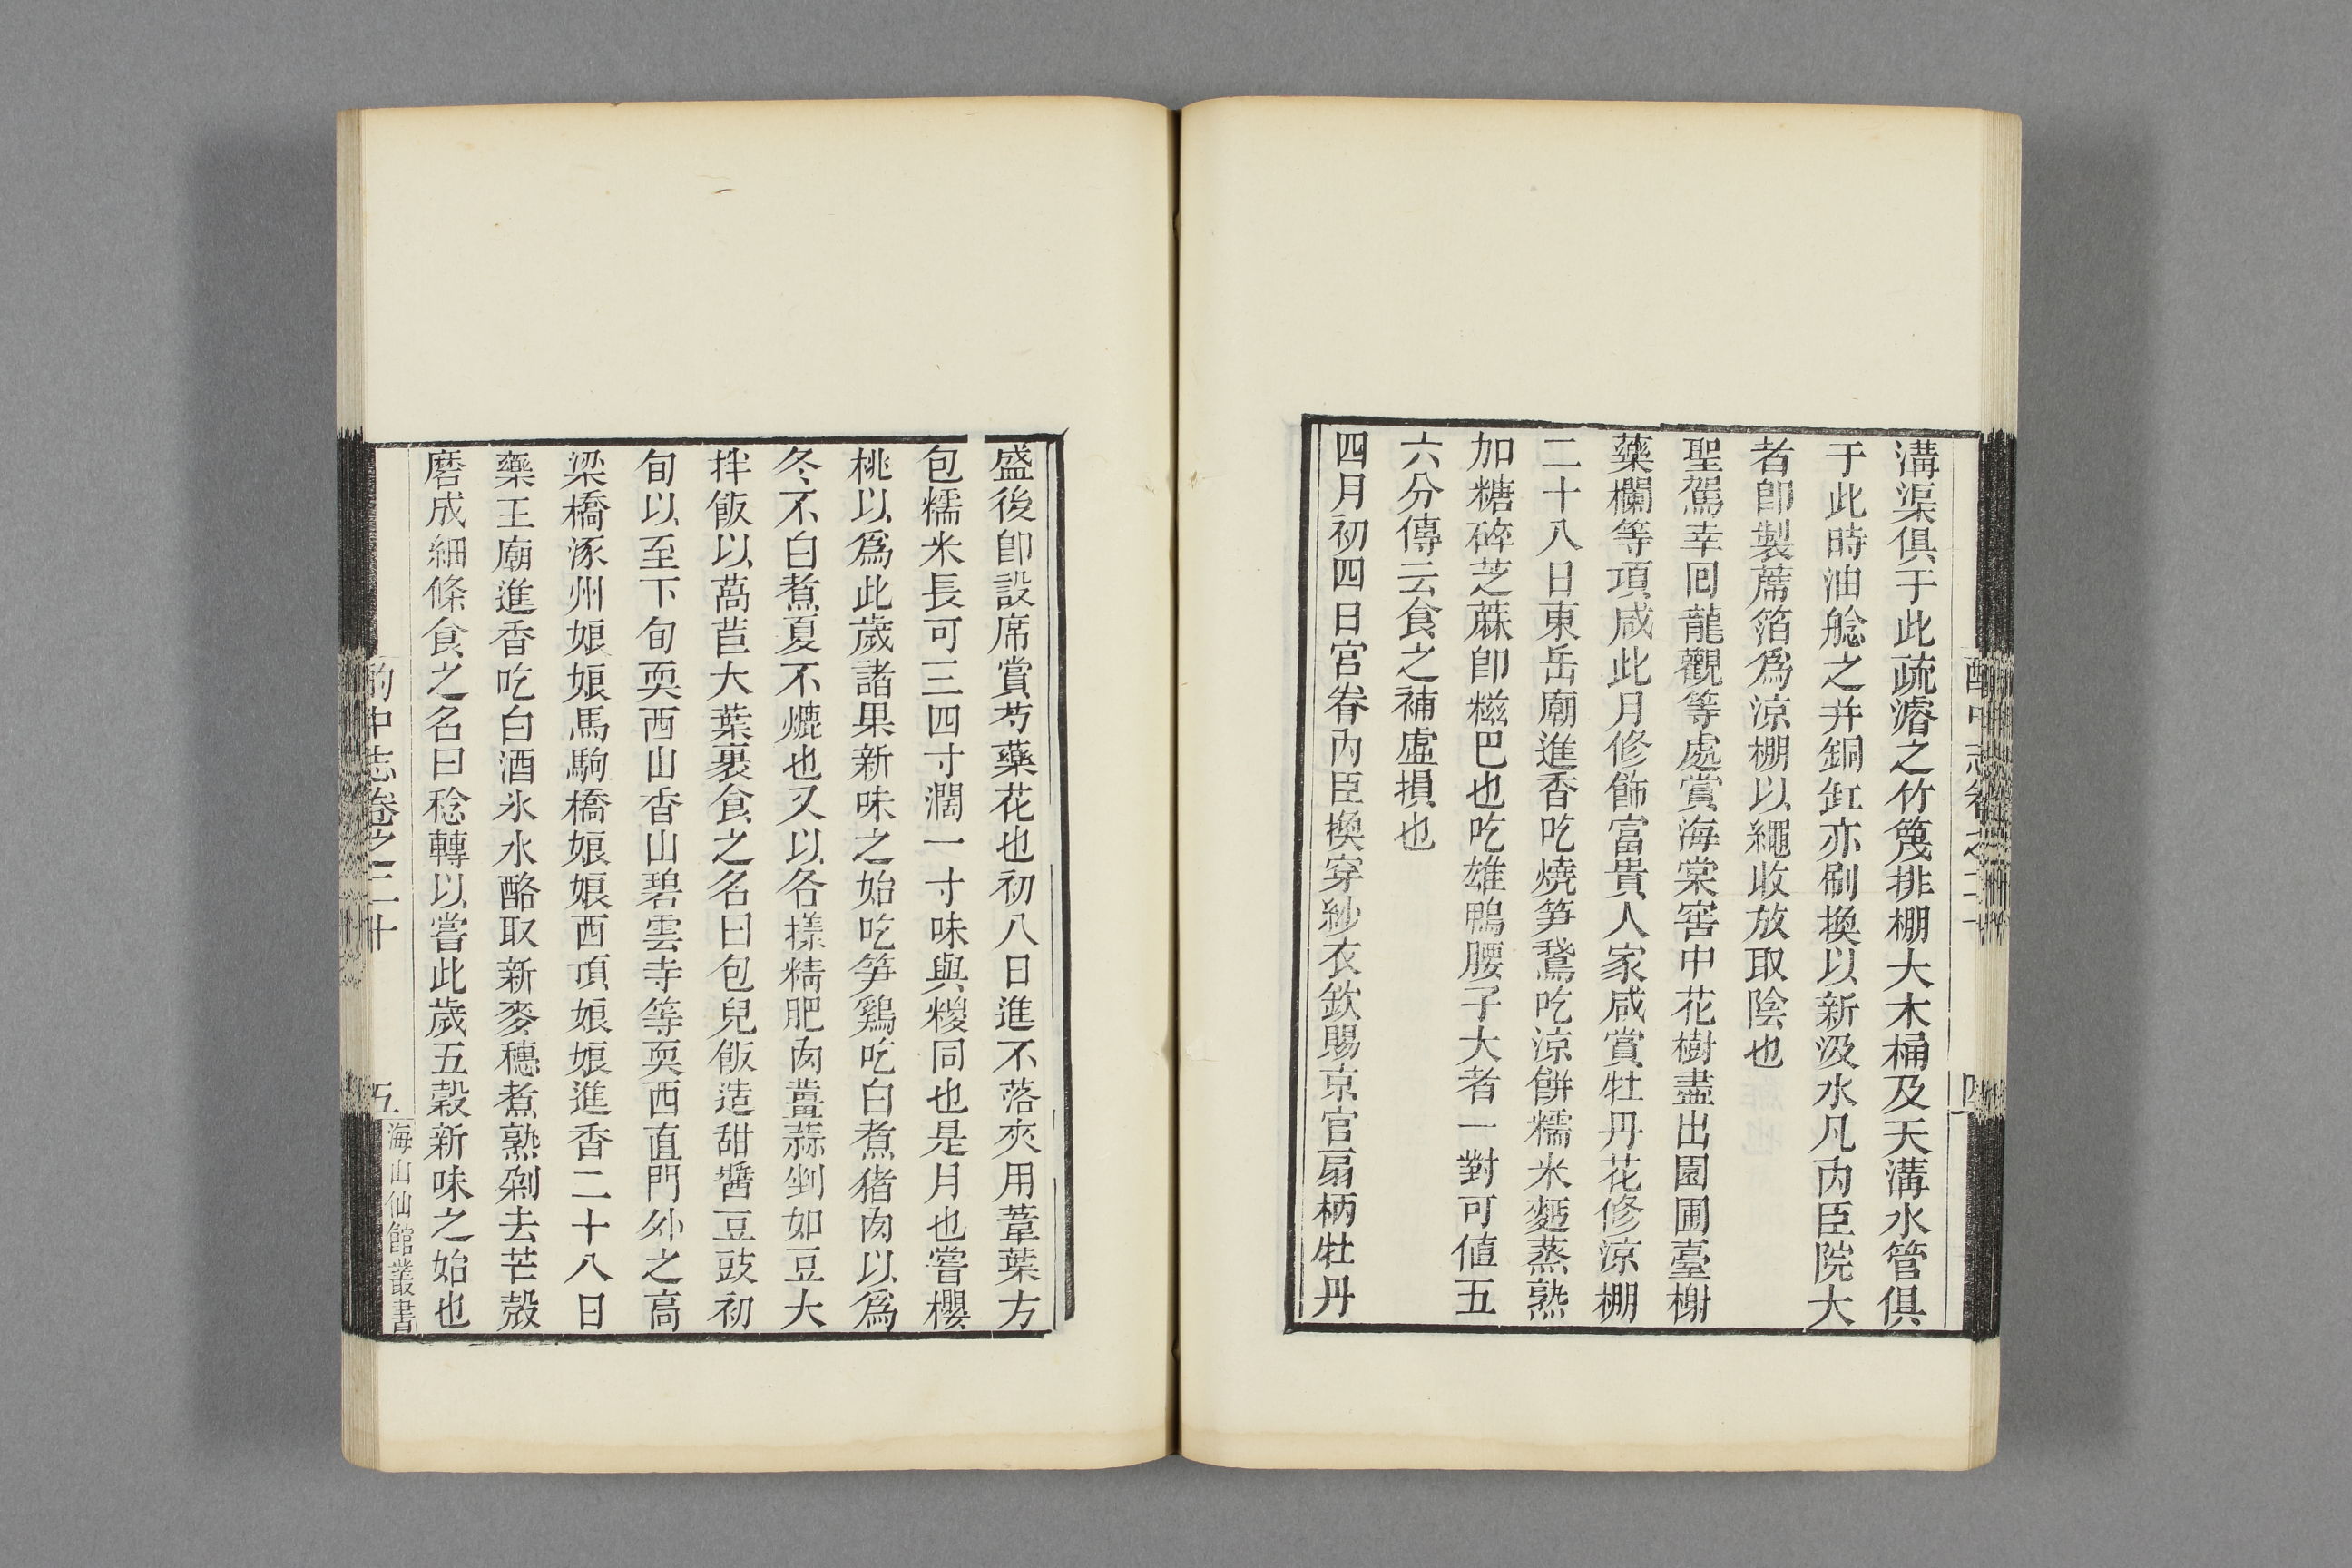 溝渠俱于此疏濬之竹篾排棚大木桶及天溝水管俱
于此時油艌之并銅缸亦刷換以新汲水凡內臣院大
者卽製蓆箔爲涼棚以繩收放取陰也
聖駕幸回龍觀等處賞海棠窖中花樹盡出園圃臺榭
藥欄等項咸此月修飾富貴人家咸賞牡丹花修涼棚
二十八日東岳廟進香吃燒笋鵞吃涼餅糯米麪蒸熟
加糖碎芝蔴卽糍巴也吃雄鴨腰子大者一對可值五
六分傳云食之補虛損也
四月初四日宮眷內臣換穿紗衣欽賜京官扇柄牡丹
盛後卽設席賞芍藥花也初八日進不落夾用葦葉方
包糯米長可三四寸濶一寸味與糉同也是月也嘗櫻
桃以爲此歲諸果新味之始吃笋鷄吃白煮猪肉以爲
冬不白煮夏不爊也又以各樣精肥肉薑蒜剉如豆大
拌飯以萵苣大葉裹食之名曰包兒飯造甜醬豆豉初
旬以至下旬耍西山香山碧雲寺等耍西直門外之高
梁橋涿州娘娘馬駒橋娘娘西頂娘娘進香二十八日
藥王廟進香吃白酒氷水酪取新麥穗煮熟剁去芒殼
磨成細條食之名曰稔轉以嘗此歲五穀新味之始也
酌中志卷之二十
五
海山仙館叢書